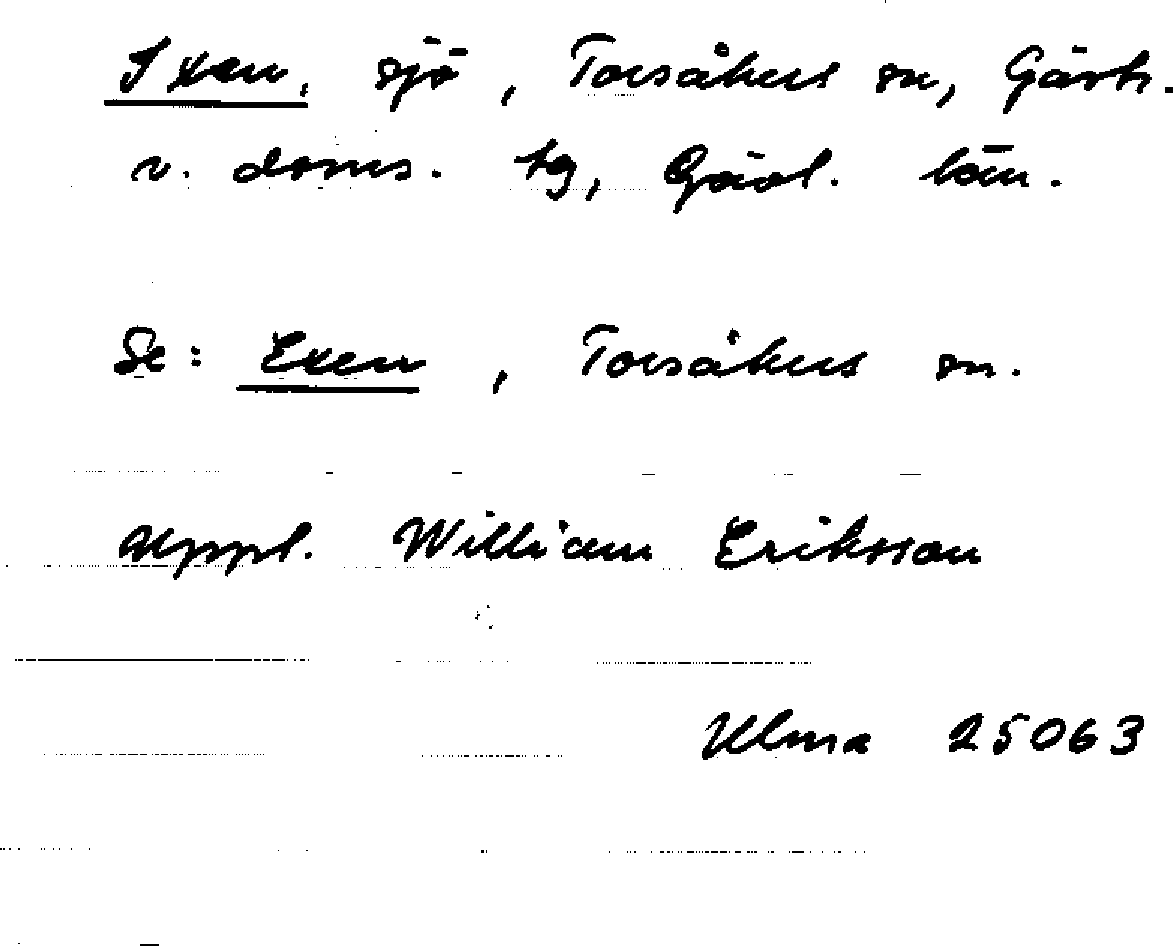 Ixen, sjö, Torsåkers sn, Gästr.
v. doms. tg, Gävl. län.
Se: Exen, Torsåkers sn.
uppl. William Eriksson
Ulma 25063